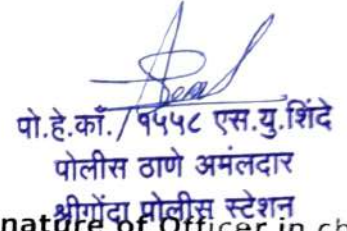 पो.हे.काँ./१५५८ एस.यु.शिंदे
पोलीस ठाणे अमंलदार
श्रीगोंदा पोलीस स्टेशन
nature of Officer in ch